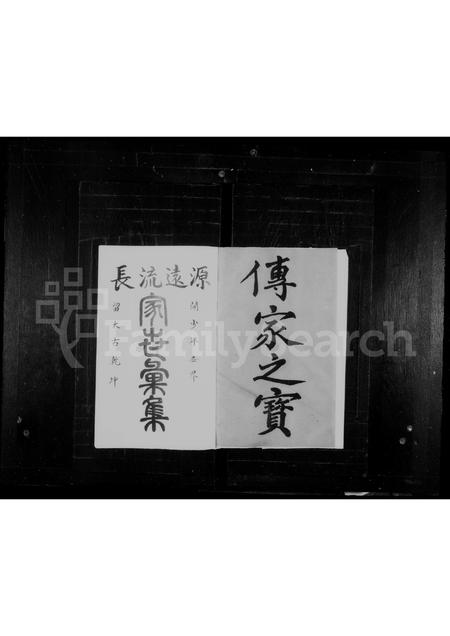 傳家之寶
源遠流長
家世彙集
留大古乾坤
FamilySearch